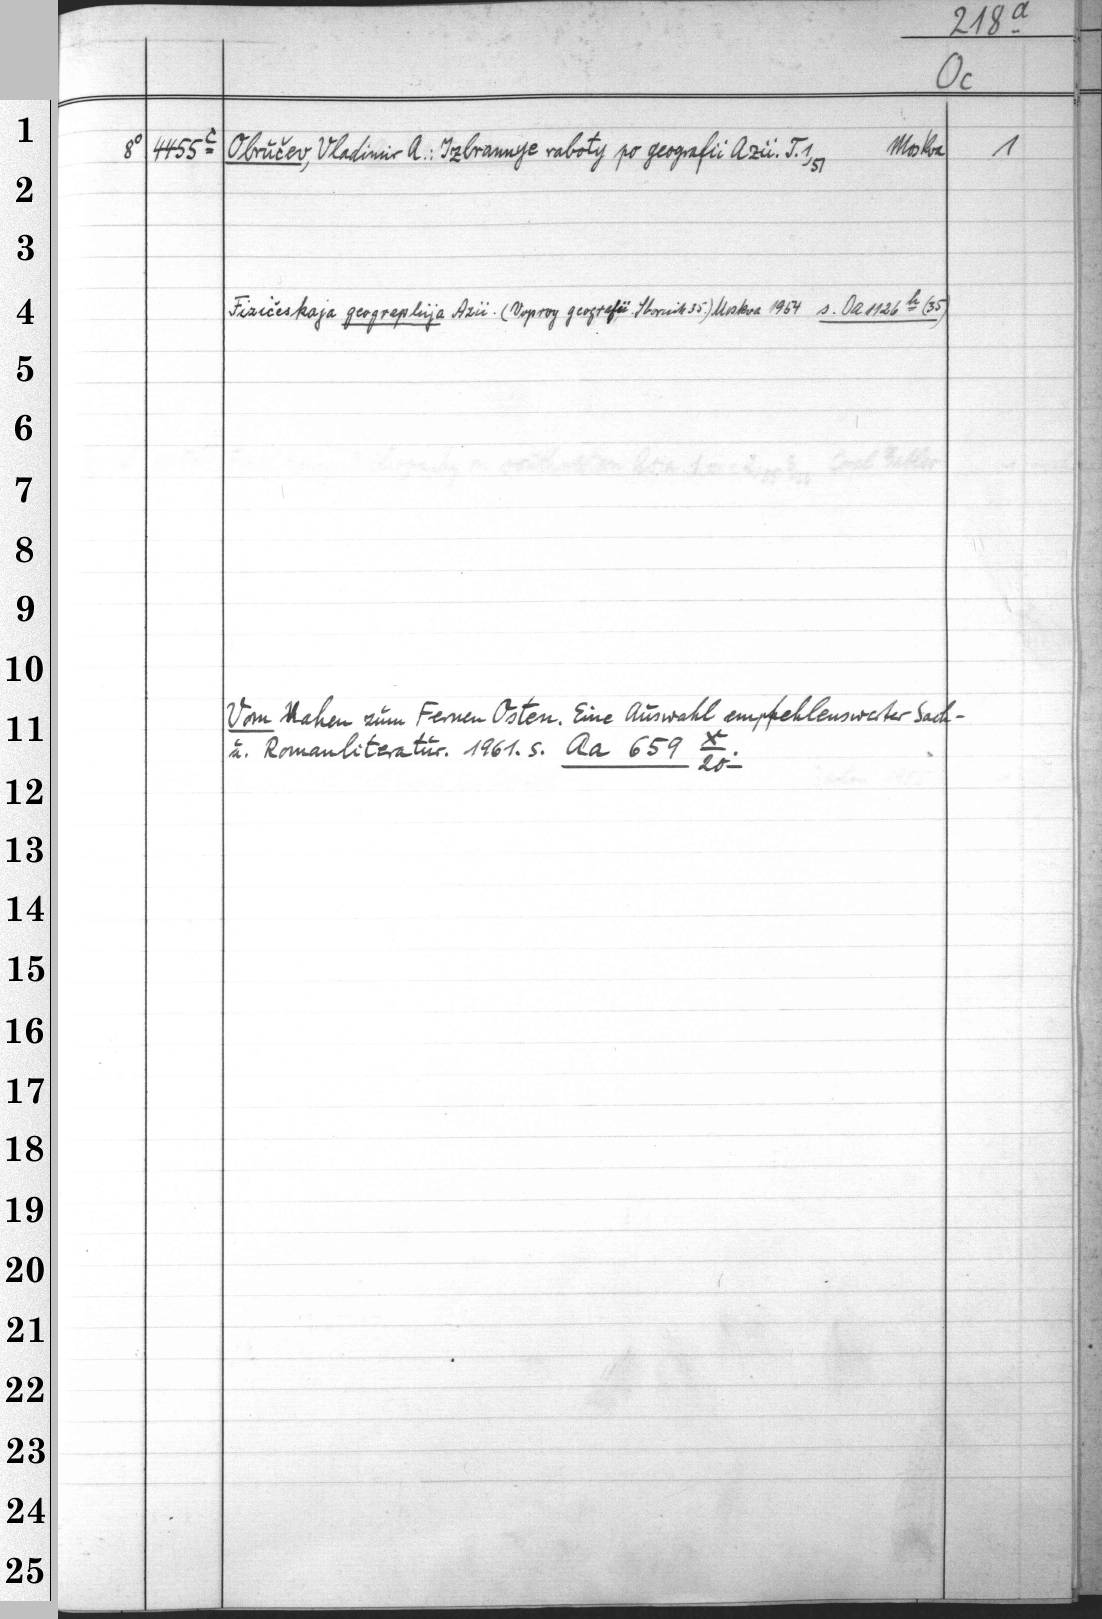 218 d
Oc
1
8° 4455 c Obručev, Vladimir A.: Izbrannye raboty po geografii Azii. T. 1,51 Moskva 1
2
3
4 Fizičeskaja geographija Azii. (Voprosy geografii. Sbornik 35.) Moskva 1954 s. Oa 1126 h (35)
5
6
7
8
9
10
11 Vom Nahen zum Fernen Osten. Eine Auswahl empfehlenswerter Sach-
u. Romanliteratur. 1961. s. Aa 659 x/20.
12
13
14
15
16
17
18
19
20
21
22
23
24
25